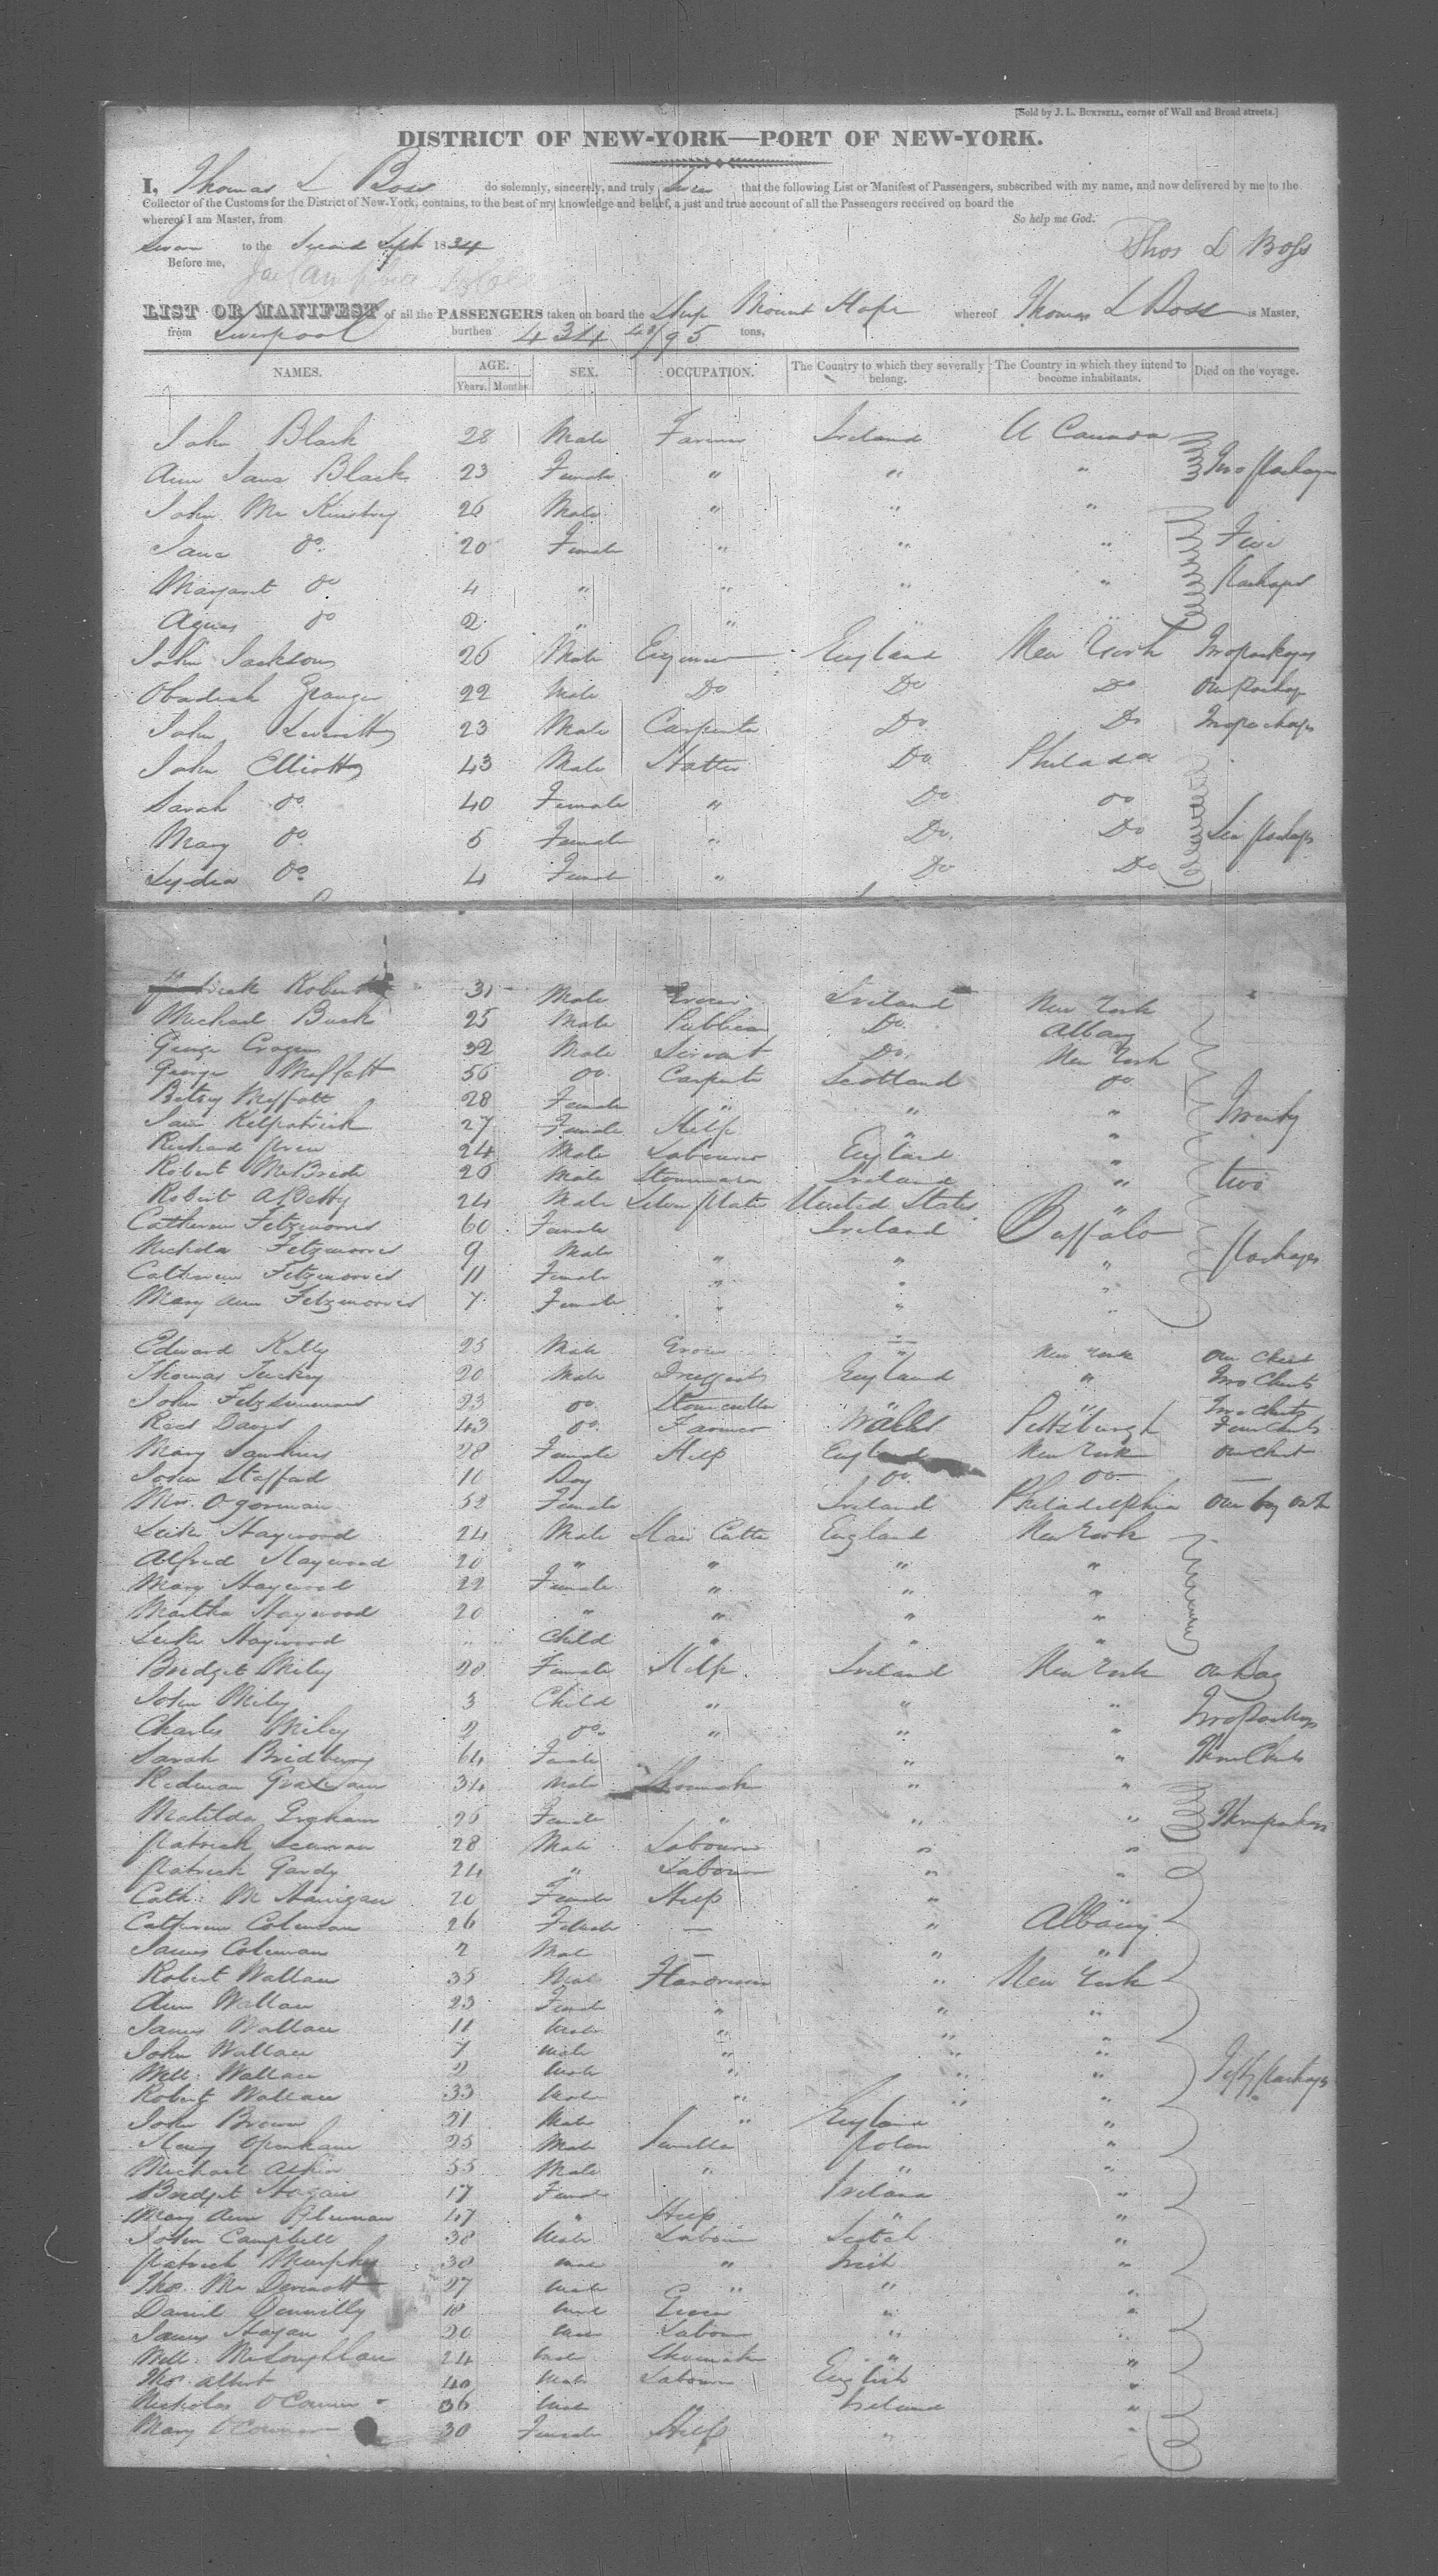 [Sold by J. L. BURTSELL, corner of Wall and Broad streets.]
DISTRICT OF NEW-YORK—PORT OF NEW-YORK.
I, Thomas L Boss do solemnly, sincerely, and truly that the following List or Manifest of Passengers, subscribed with my name, and now delivered by me to the
Collector of the Customs for the District of New-York, contains, to the best of my knowledge and belief, a just and true account of all the Passengers received on board the
whereof I am Master, from So help me God.
Sworn to the Second Sept 1834 Thos L Boss
Before me,
LIST OR MANIFEST of all the PASSENGERS taken on board the Ship Mount Hope whereof Thomas L Boss is Master,
from Liverpool burthen 434 48/95 tons,
NAMES. AGE. Years. Months. SEX. OCCUPATION. The Country to which they severally belong. The Country in which they intend to become inhabitants. Died on the voyage.
John Black 28 Male Farmer Ireland U Canada
Ann Jane Black 23 Female " " " Two packages
John Mc 26 Male " " "
Jane Do. 20 Female " " " Five
Margaret Do 4 " " " " packages
Agnes Do 2 " " " "
John Jackson 26 Male Engineer England New York Two packages
Obadiah Granger 22 Male Do Do Do One package
John 23 Male Carpenter Do. Do Two packages
John Elliott 43 Male Hatter Do Philada
Sarah Do. 40 Female " Do Do
Mary Do. 5 Female " Do. Do Six packages
Lydia Do. 4 Female " Do Do
Patrick Roberts 31 Male Grocer Ireland New York
Michael 25 Male Publican Do. Albany
George 32 Male Servant Do. New York
George Moffatt 56 Do. Carpenter Scotland Do.
Betsy Moffatt 28 Female " " " Twenty
Jane Kilpatrick 27 Female Help " "
Richard 24 Male Labourer England "
Robert McBride 26 Male Ireland " two
Robert 24 Male Silver plater United States "
Catherine Fitzmorris 60 Female Ireland Buffalo
Nicholas Fitzmorris 9 Male " " " packages
Catherine Fitzmorris 11 Female " " "
Mary Ann Fitzmorris 7 Female " " "
Edward Kelly 25 Male Grocer " New York One Chest
Thomas Tuckey 20 Male Druggist England " Two Chests
John Fitzsimmons 23 Do. Stonecutter " " Two Chests
Rees Davis 43 Do. Farmer Wales Pittsburgh Four Chests
Mary 28 Female Help England New York One Chest
John Stafford 10 Boy Do. Do —
Mrs. Ogorman 52 Female Ireland Philadelphia
Luke Haywood 24 Male England New York
Alfred Haywood 20 " " " "
Mary Haywood 22 Female " " "
Martha Haywood 20 " " " "
Luke Haywood " Child " " "
Bridget Miley 28 Female Help. Ireland New York One Bag
John Miley 3 Child " " "
Charles Miley 2 Do. " " " Two Packages
Sarah Bridbury 64 Female " " Three Chests
Redman Graham 34 Male Shoemaker " "
Matilda Graham 26 Female " " " Three packages
Patrick 28 Male Labourer " "
Patrick Gardy 24 " Labourer " "
Cath. 20 Female Help " "
Catherine Coleman 26 Female — " Albany
James Coleman 2 Male — " "
Robert Wallace 35 Male " New York
Ann Wallace 23 Female " " "
James Wallace 11 Male " " "
John Wallace 7 Male " " "
Will. Wallace 2 Male " " " Fifty packages
Robert Wallace 33 Male " " "
John Brown 21 Male " England "
Henry 25 Male Jeweller "
Michael 55 Male " " "
Bridget Hagan 17 Female Ireland "
Mary Ann 47 " Help " "
John Campbell 38 Male Labourer Scotch "
Patrick Murphy 30 Male " Irish "
Thos. McDermott 27 Male " " "
Daniel Donnilly 18 Male Grocer " "
James Hagan 20 Male Labour " "
Will. McLoughlan 24 Male Shoemaker " "
Thos. Albert 40 Male Labourer English "
Nicholas O'Connor 36 Male Ireland "
Mary O'Connor 30 Female Help " "